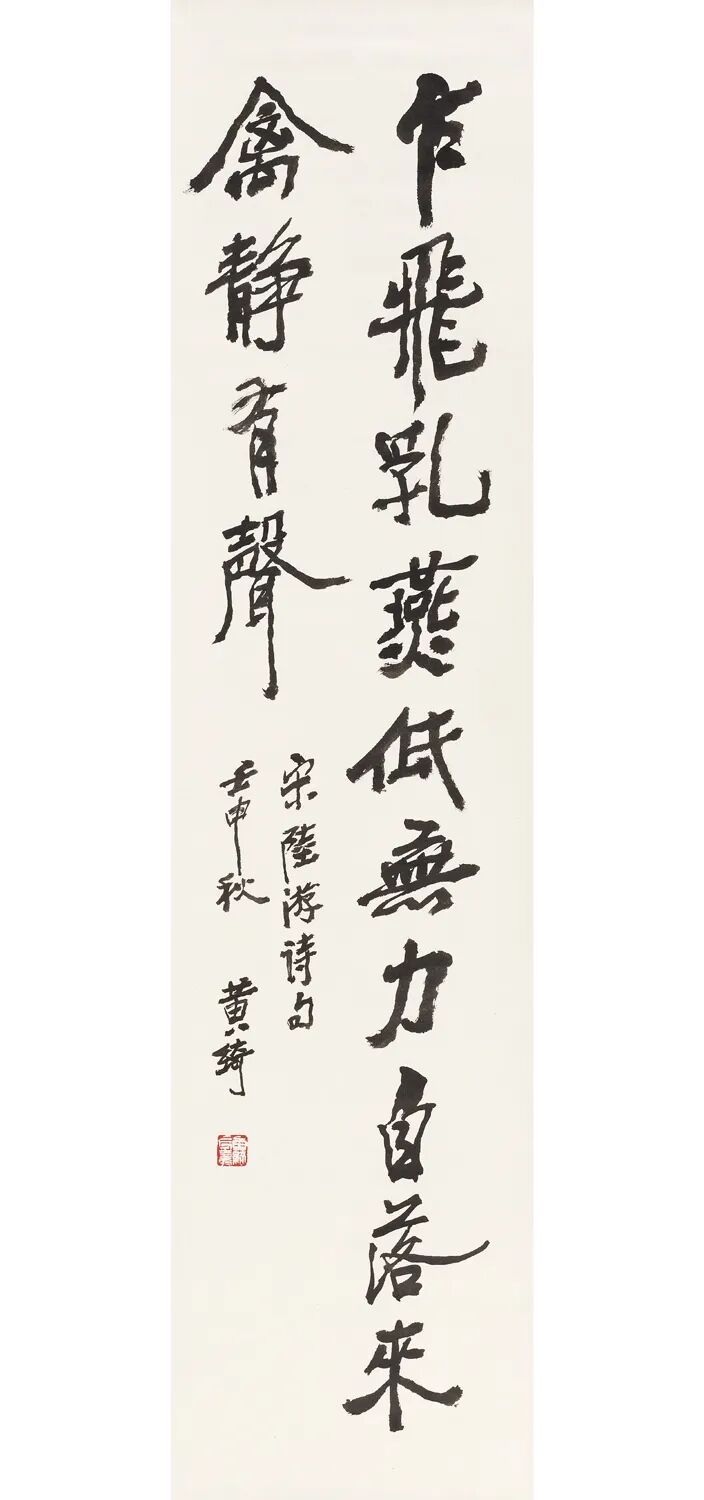 乍飛乳燕低無力自落來
禽静有聲
宋陸游诗句
壬申秋 黄绮